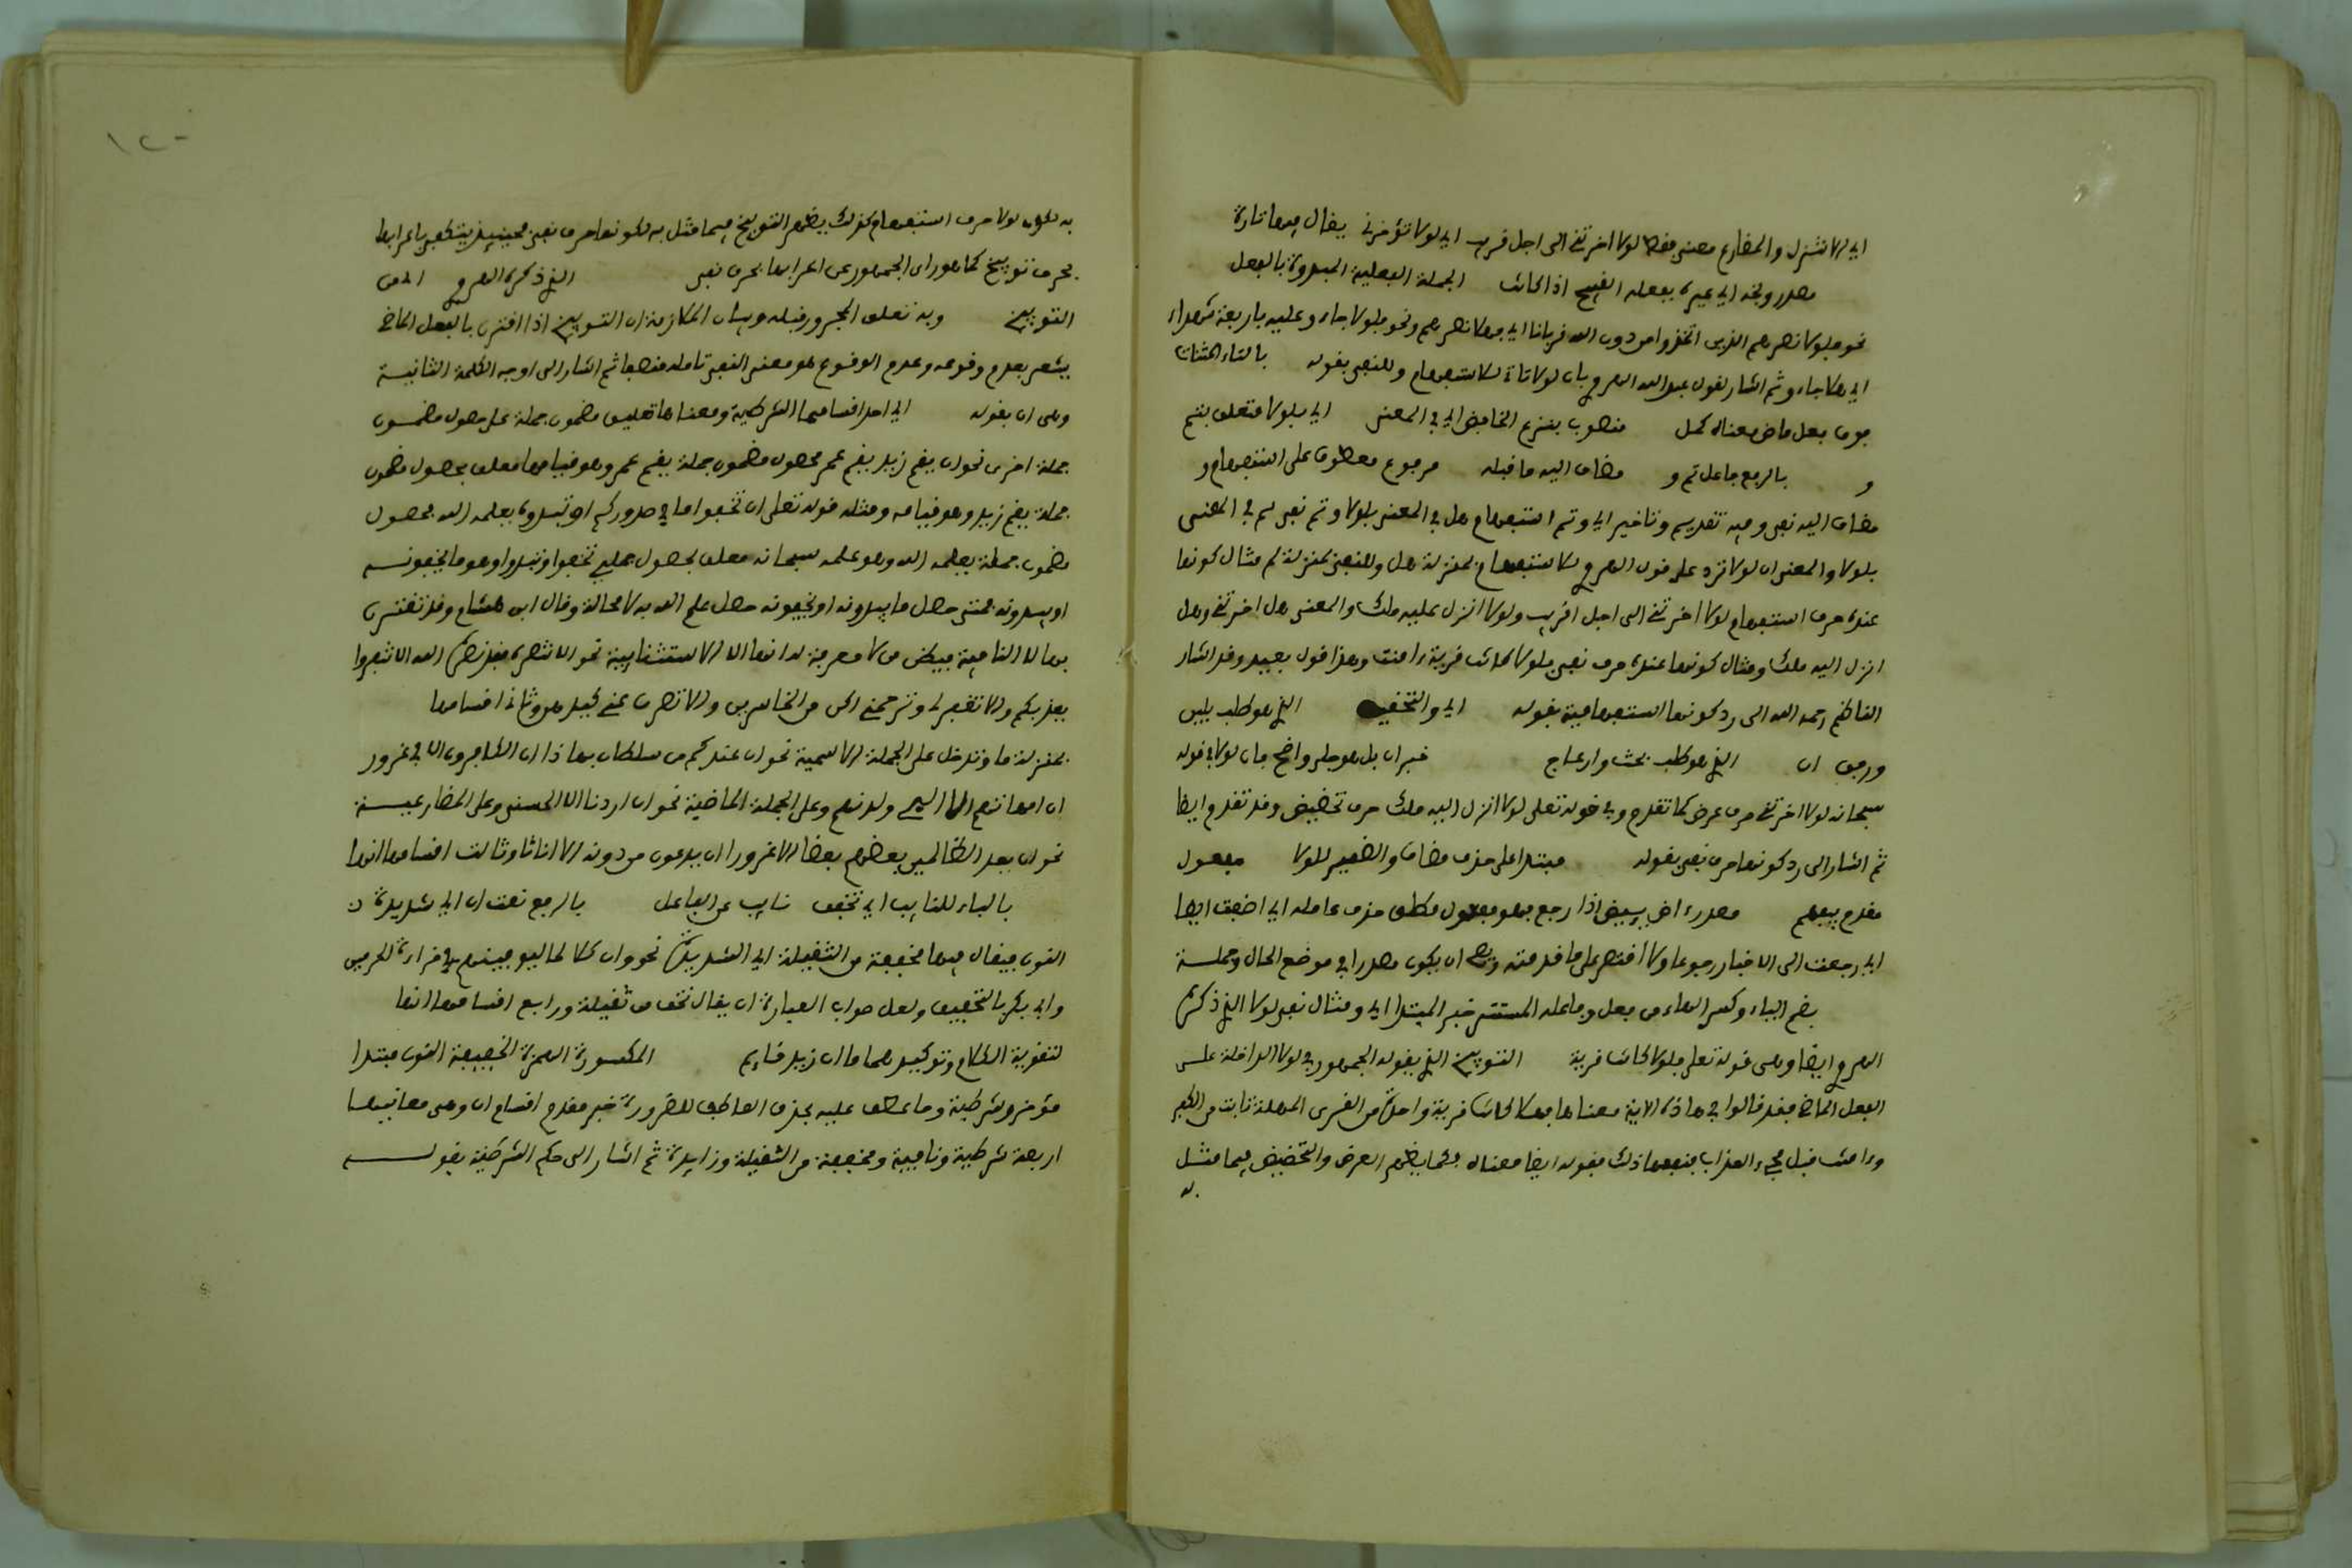 اي لا تنزل والمضارع معنى فقط لولا اخرتني الى اجل قريب اي لولا تؤخرني يقال فيها تارة
مصدر وبخه اي عيره بفعله القبيح اذا كانت الجملة الفعلية المبدوة بالفعل
نحو فلولا نصرهم الذين اتخذوا من دون الله قربانا اي فهلا نصرهم ونحو فلولا جاءو عليه باربعة شهداء
اي هلا جاءو ثم اشار لقول عبد الله الهروي بان لولا تاتي للاستفهام وللنفي بقوله بالتاء المثناة
فوق فعل ماض معناه كمل منصوب بنزع الخافض اي في المعنى اي بلولا متعلق بتم
و بالرفع فاعل تم و مضاف اليه ما قبله مرفوع معطوف على استفهام و
مضاف اليه نفي وفيه تقديم وتاخير اي وتم استفهام هل في المعنى بلولا وتم نفي لم في المعنى
بلولا والمعنى ان لولا ترد على قول الهروي للاستفهام بمنزلة هل وللنفي بمنزلة لم مثال كونها
عنده حرف استفهام لولا اخرتني الى اجل قريب ولولا انزل عليه ملك والمعنى هل اخرتني وهل
انزل اليه ملك ومثال كونها عنده حرف نفي فلولا كانت قرية ءامنت وهذا قول بعيد وقد اشار
الناظم رحمه الله الى رد كونها استفهامية بقوله اي والتخفيف الذي هو طلب بلين
ورفق ان الذي هو طلب بحث وازعاج خبر ان بل هو جلي واضح فان لولا في قوله
سبحانه لولا اخرتني حرف عرض كما تقدم وفي قوله تعلى لولا انزل اليه ملك حرف تحضيض وقد تقدم ايضا
ثم اشار الى رد كونها حرف نفي بقوله مبتدا على حذف مضاف والضمير للولا مفعول
مقدم بيفهم مصدر ءاض يئيض اذا رجع فهو مفعول مطلق حذف عامله اي اضت ايضا
اي رجعت الى الاخبار رجوعا ولا اقتصر على ما قدمته ويصح ان يكون مصدرا في موضع الحال وجملة
بضم الياء وكسر الهاء من فعل وفاعله المستتر خبر المبتدا اي ومثال نفي لولا الذي ذكره
الهروي ايضا وهي قوله تعلى فلولا كانت قرية التوبيخ الذي يقوله الجمهور في لولا الداخلة على
الفعل الماضي فقد قالوا في هاذه الاية معناها فهلا كانت قرية واحدة من القرى المهلكة تابت من الكفر
وءامنت قبل مجيء العذاب فنفعها ذلك فقوله ايضا معناه فكما يفهم العرض والتحضيض فيما مثل
به
به لكون لولا حرف استفهام كذلك يفهم التوبيخ فيما مثل به لكونها حرف نفي فحينيذ يكفي اعرابها
بحرف توبيخ كما هو راي الجمهور عن اعرابها بحرف نفي الذي ذكره الهروي
التوبيخ وبه تعلق المجرور قبله وبيان الملازمة ان التوبيخ اذا اقترن بالفعل الماضي
يشعر بعدم وقوعه وعدم الوقوع هو معنى النفي تامله منصفا ثم اشار الى اوجه الكلمة الثانية
وهي ان بقوله اي احد اقسامها الشرطية ومعناها تعليق مضمون جملة على حصول مضمون
جملة اخرى نحو ان يقم زيد يقم عمر فحصول مضمون جملة يقم عمر وهو قيامها معلق بحصول مضمون
جملة يقم زيد وهو قيامه ومثله قوله تعلى ان تخفوا ما في صدوركم او تبدوه يعلمه الله فحصول
مضمون جملة يعلمه الله وهو علمه سبحانه معلق بحصول جملتي تخفوا وتبدوا وهو ما يخفونه
او يبدونه فمتى حصل ما يبدونه او يخفونه حصل علم الله به لا محالة وقال ابن هشام وقد تقترن
بها لا النافية فيظن من لا معرفة له انها الا الاستثنايية نحو الا تنصروه فقد نصره الله الا تنفروا
يعذبكم والا تغفر لي وترحمني اكن من الخاسرين والا تصرف عني كيدهن وثاني اقسامها
بمنزلة ما وتدخل على الجملة الاسمية نحو ان عندكم من سلطان بهاذا ان الكافرون الا في غرور
ان امهاتهم الا اليي ولدنهم وعلى الجملة الماضية نحو ان اردنا الا الحسنى وعلى المضارعية
نحو ان يعد الظالمين بعضهم بعضا الا غرورا ان يدعون من دونه الا اناثا وثالث اقسامها انها
بالياء للنايب اي تخفف نايب عن الفاعل بالرفع نعت ان اي شديدة
النون فيقال فيها مخففة من الثقيلة اي الشديدة نحو وان كلا لما ليوفينهم في قراءة الحرمين
وابي بكر بالتخفيف ولعل صواب العبارة ان يقال تخفف من ثقيلة ورابع اقسامها انها
لتقوية الكلام وتوكيده كما في ما ان زيد قايم المكسورة الهمزة الخفيفة النون مبتدا
مؤخر وشرطية وما عطف عليه بحذف العاطف للضرورة خبر مقدم اقسام ان وهي معانيها
اربعة شرطية ونافية ومخففة من الثقيلة وزايدة ثم اشار الى حكم الشرطية بقوله